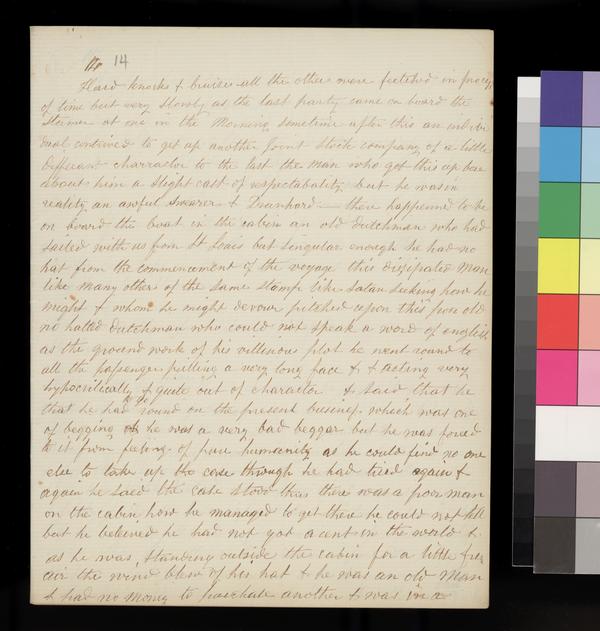 14
Hard knocks & bruises all the others were fetched in process
of time but very slowly as the last party came on board the
steamer at one in the Morning sometime after this an indivi
dual contrived to get up another Joint Stock company of a little
different charractor to the last the man who got this up bore
about him a slight cast of respectability but he was in
reality an awful swearer & Drunkard there happenned to be
on board the boat in the cabin an old dutchman who had
sailed with us from St Louis but singular enough he had no
hat from the commencement of the voyage this disipated Man
like many others of the same stamp like satan seeking how he
might & whom he might devour pitched upon this poor old
no hatted dutchman who could not speak a word of english
as the ground work of his villinous plot he went round to
all the passengers putting a very long face & & acting very
hypocritically & quite out of character & said that he
that he had to go round on the present business which was one
of begging he was a very bad beggar but he was forced
to it from feelings of pure humanity as he could find no one
else to take up the case through he had tried again &
again he said the case stood thus there was a poor man
on the cabin how he managed to get there he could not tell
but he believed he had not got a cent in the world &
as he was standing outside the cabin for a little fresh
air the wind blew of his hat & he was an old Man
& had no money to purchase another & was in a